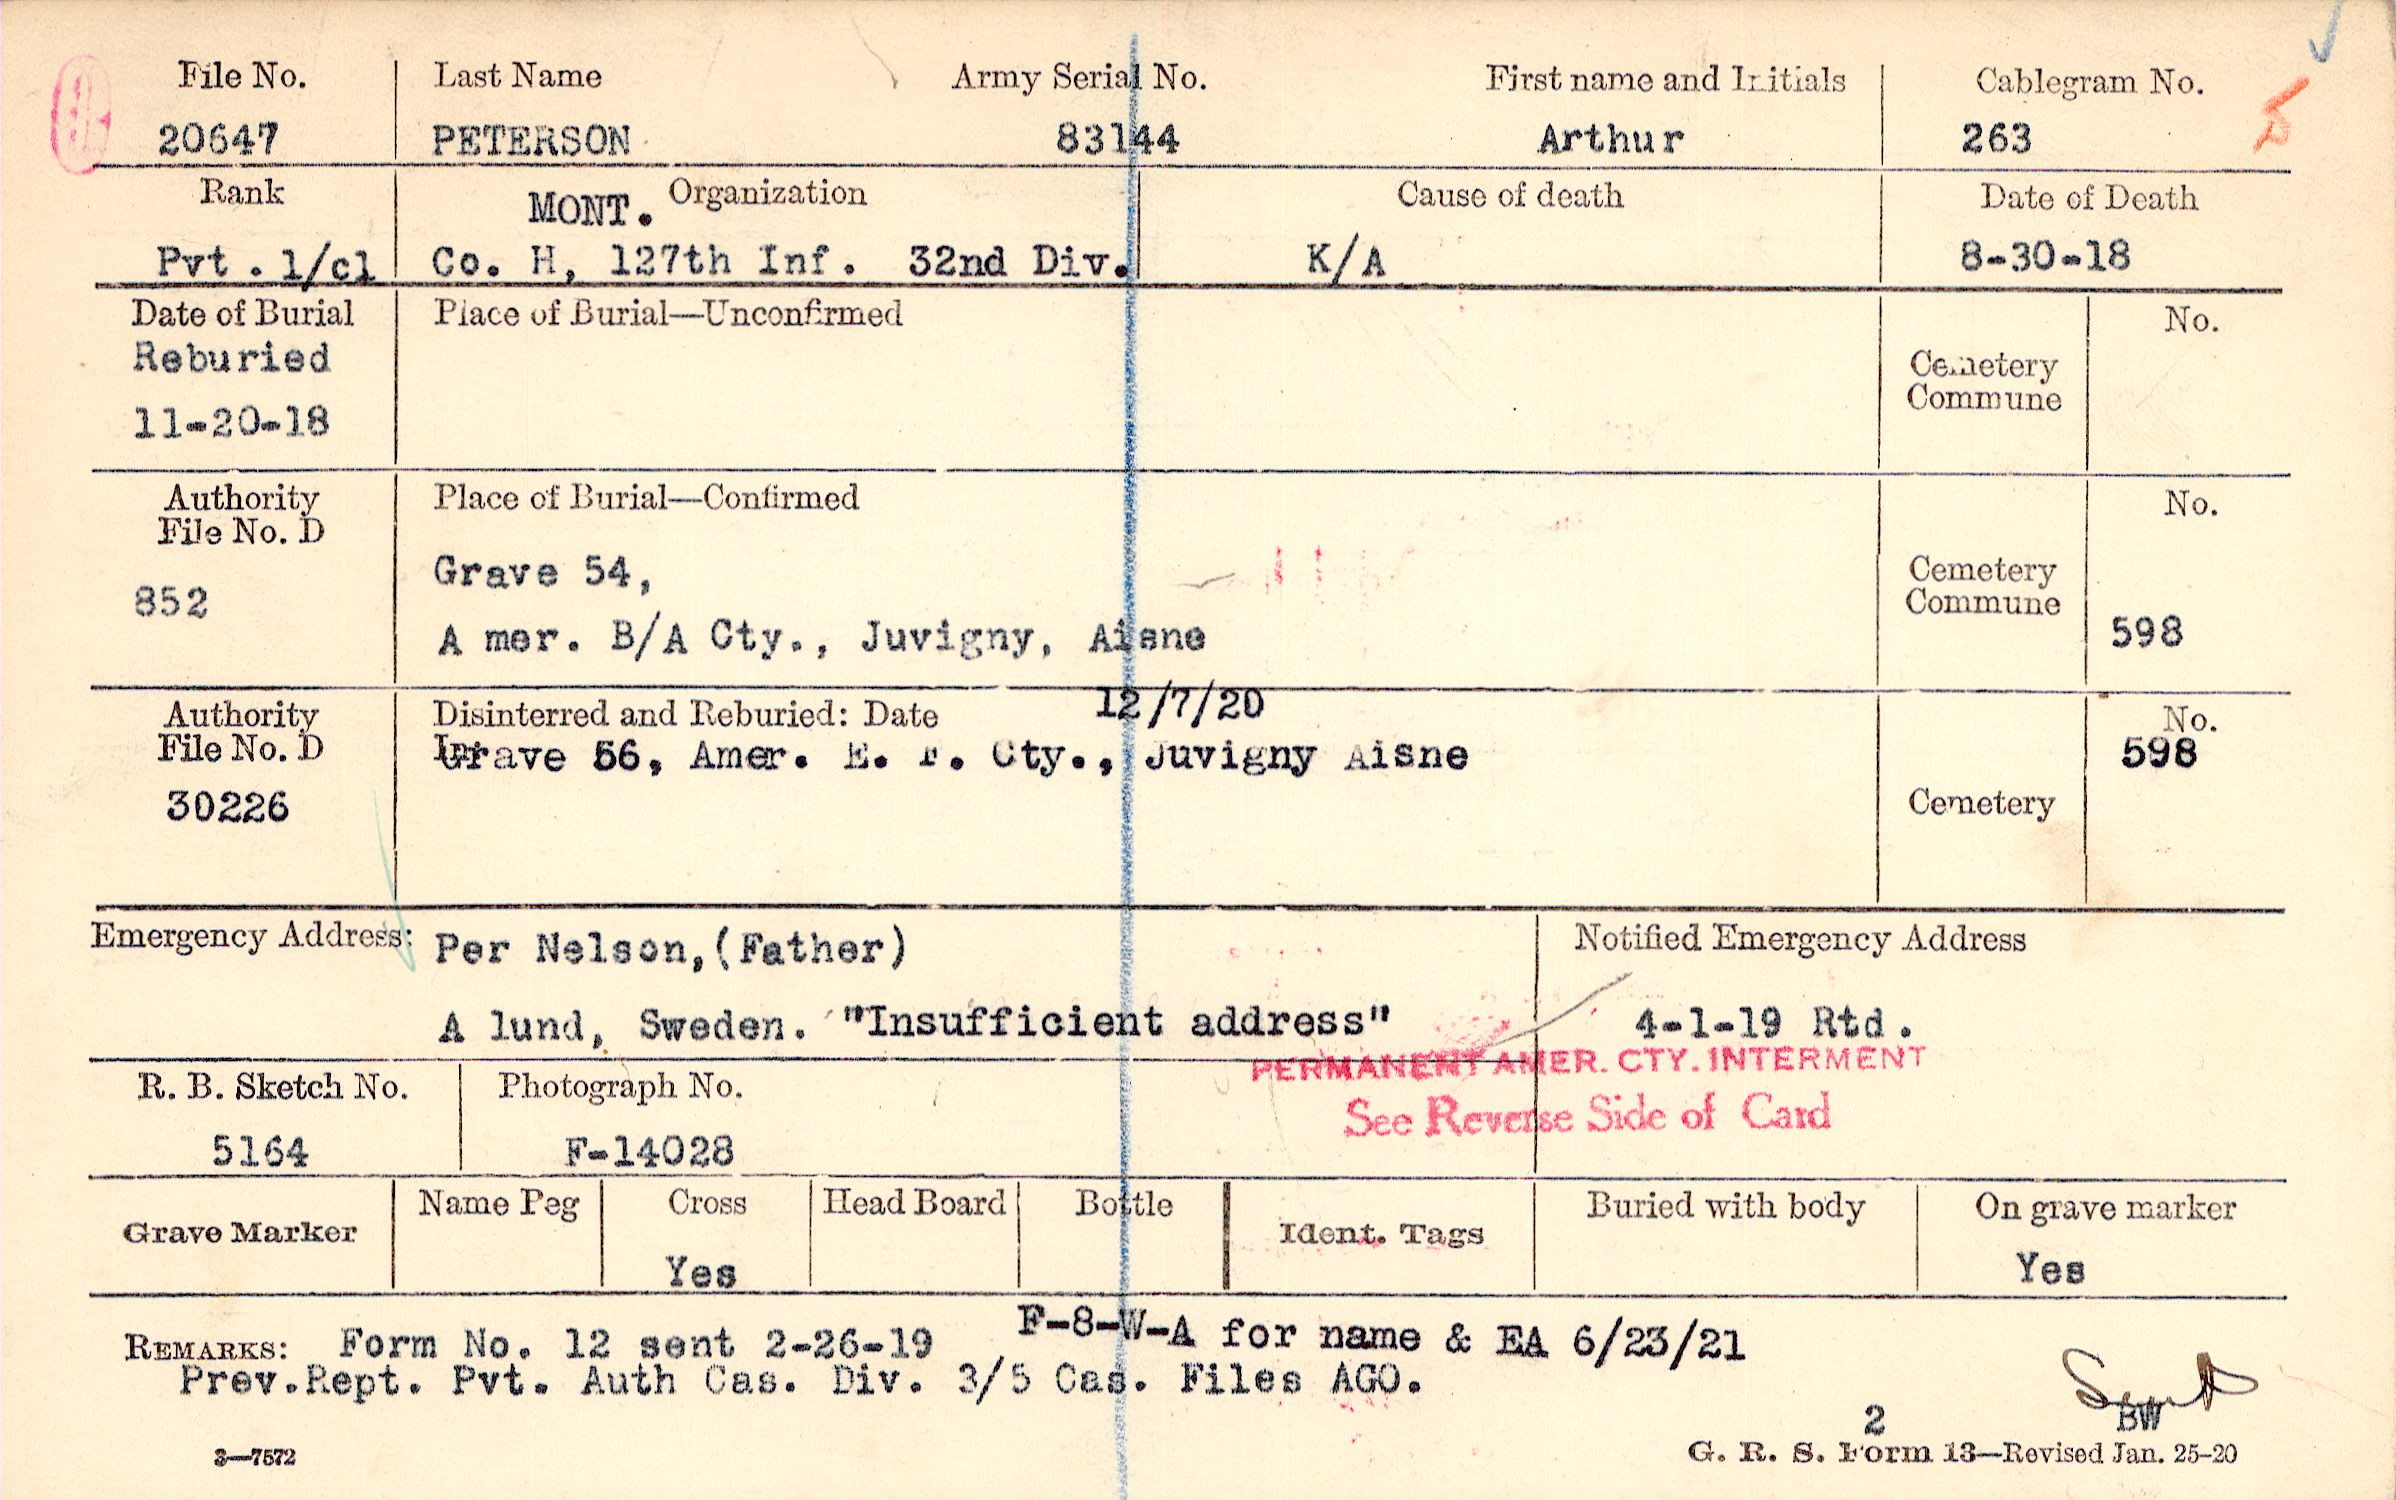 File No. Last Name Army Serial No. First name and Initials Cablegram No.
20647 PETERSON 83144 Arthur 263
Rank MONT. Organization Cause of death Date of Death
Pvt. 1/cl Co. H, 127th Inf. 32nd Div. K/A 8-30-18
Date of Burial Place of Burial—Unconfirmed No.
Reburied
Cemetery
Commune
11-20-18
Authority Place of Burial—Confirmed No.
File No. D
Grave 54,
Cemetery
852
Commune
A mer. B/A Cty., Juvigny, Aisne 598
12/7/20
Authority Disinterred and Reburied: Date No.
File No. D Grave 56, Amer. E. F. Cty., Juvigny Aisne 598
30226 Cemetery
Emergency Address: Per Nelson,(Father) Notified Emergency Address
A lund, Sweden. "Insufficient address" 4-1-19 Rtd.
PERMANENT AMER. CTY. INTERMENT
R. B. Sketch No. Photograph No.
See Reverse Side of Card
5164 F-14028
Grave Marker Name Peg Cross Head Board Bottle Ident. Tags Buried with body On grave marker
Yes Yes
REMARKS: Form No. 12 sent 2-26-19 F-8-W-A for name & EA 6/23/21
Prev.Rept. Pvt. Auth Cas. Div. 3/5 Cas. Files AGO.
2 BW
3—7572 G. R. S. Form 13—Revised Jan. 25-20